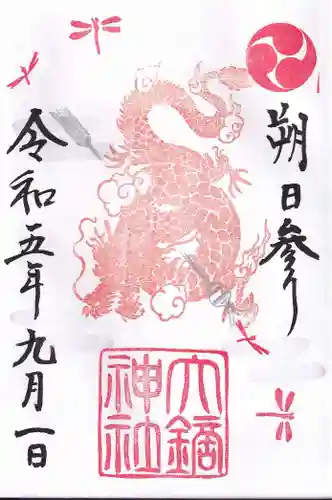 朔日参り
六鏑
神社
令和五年九月一日